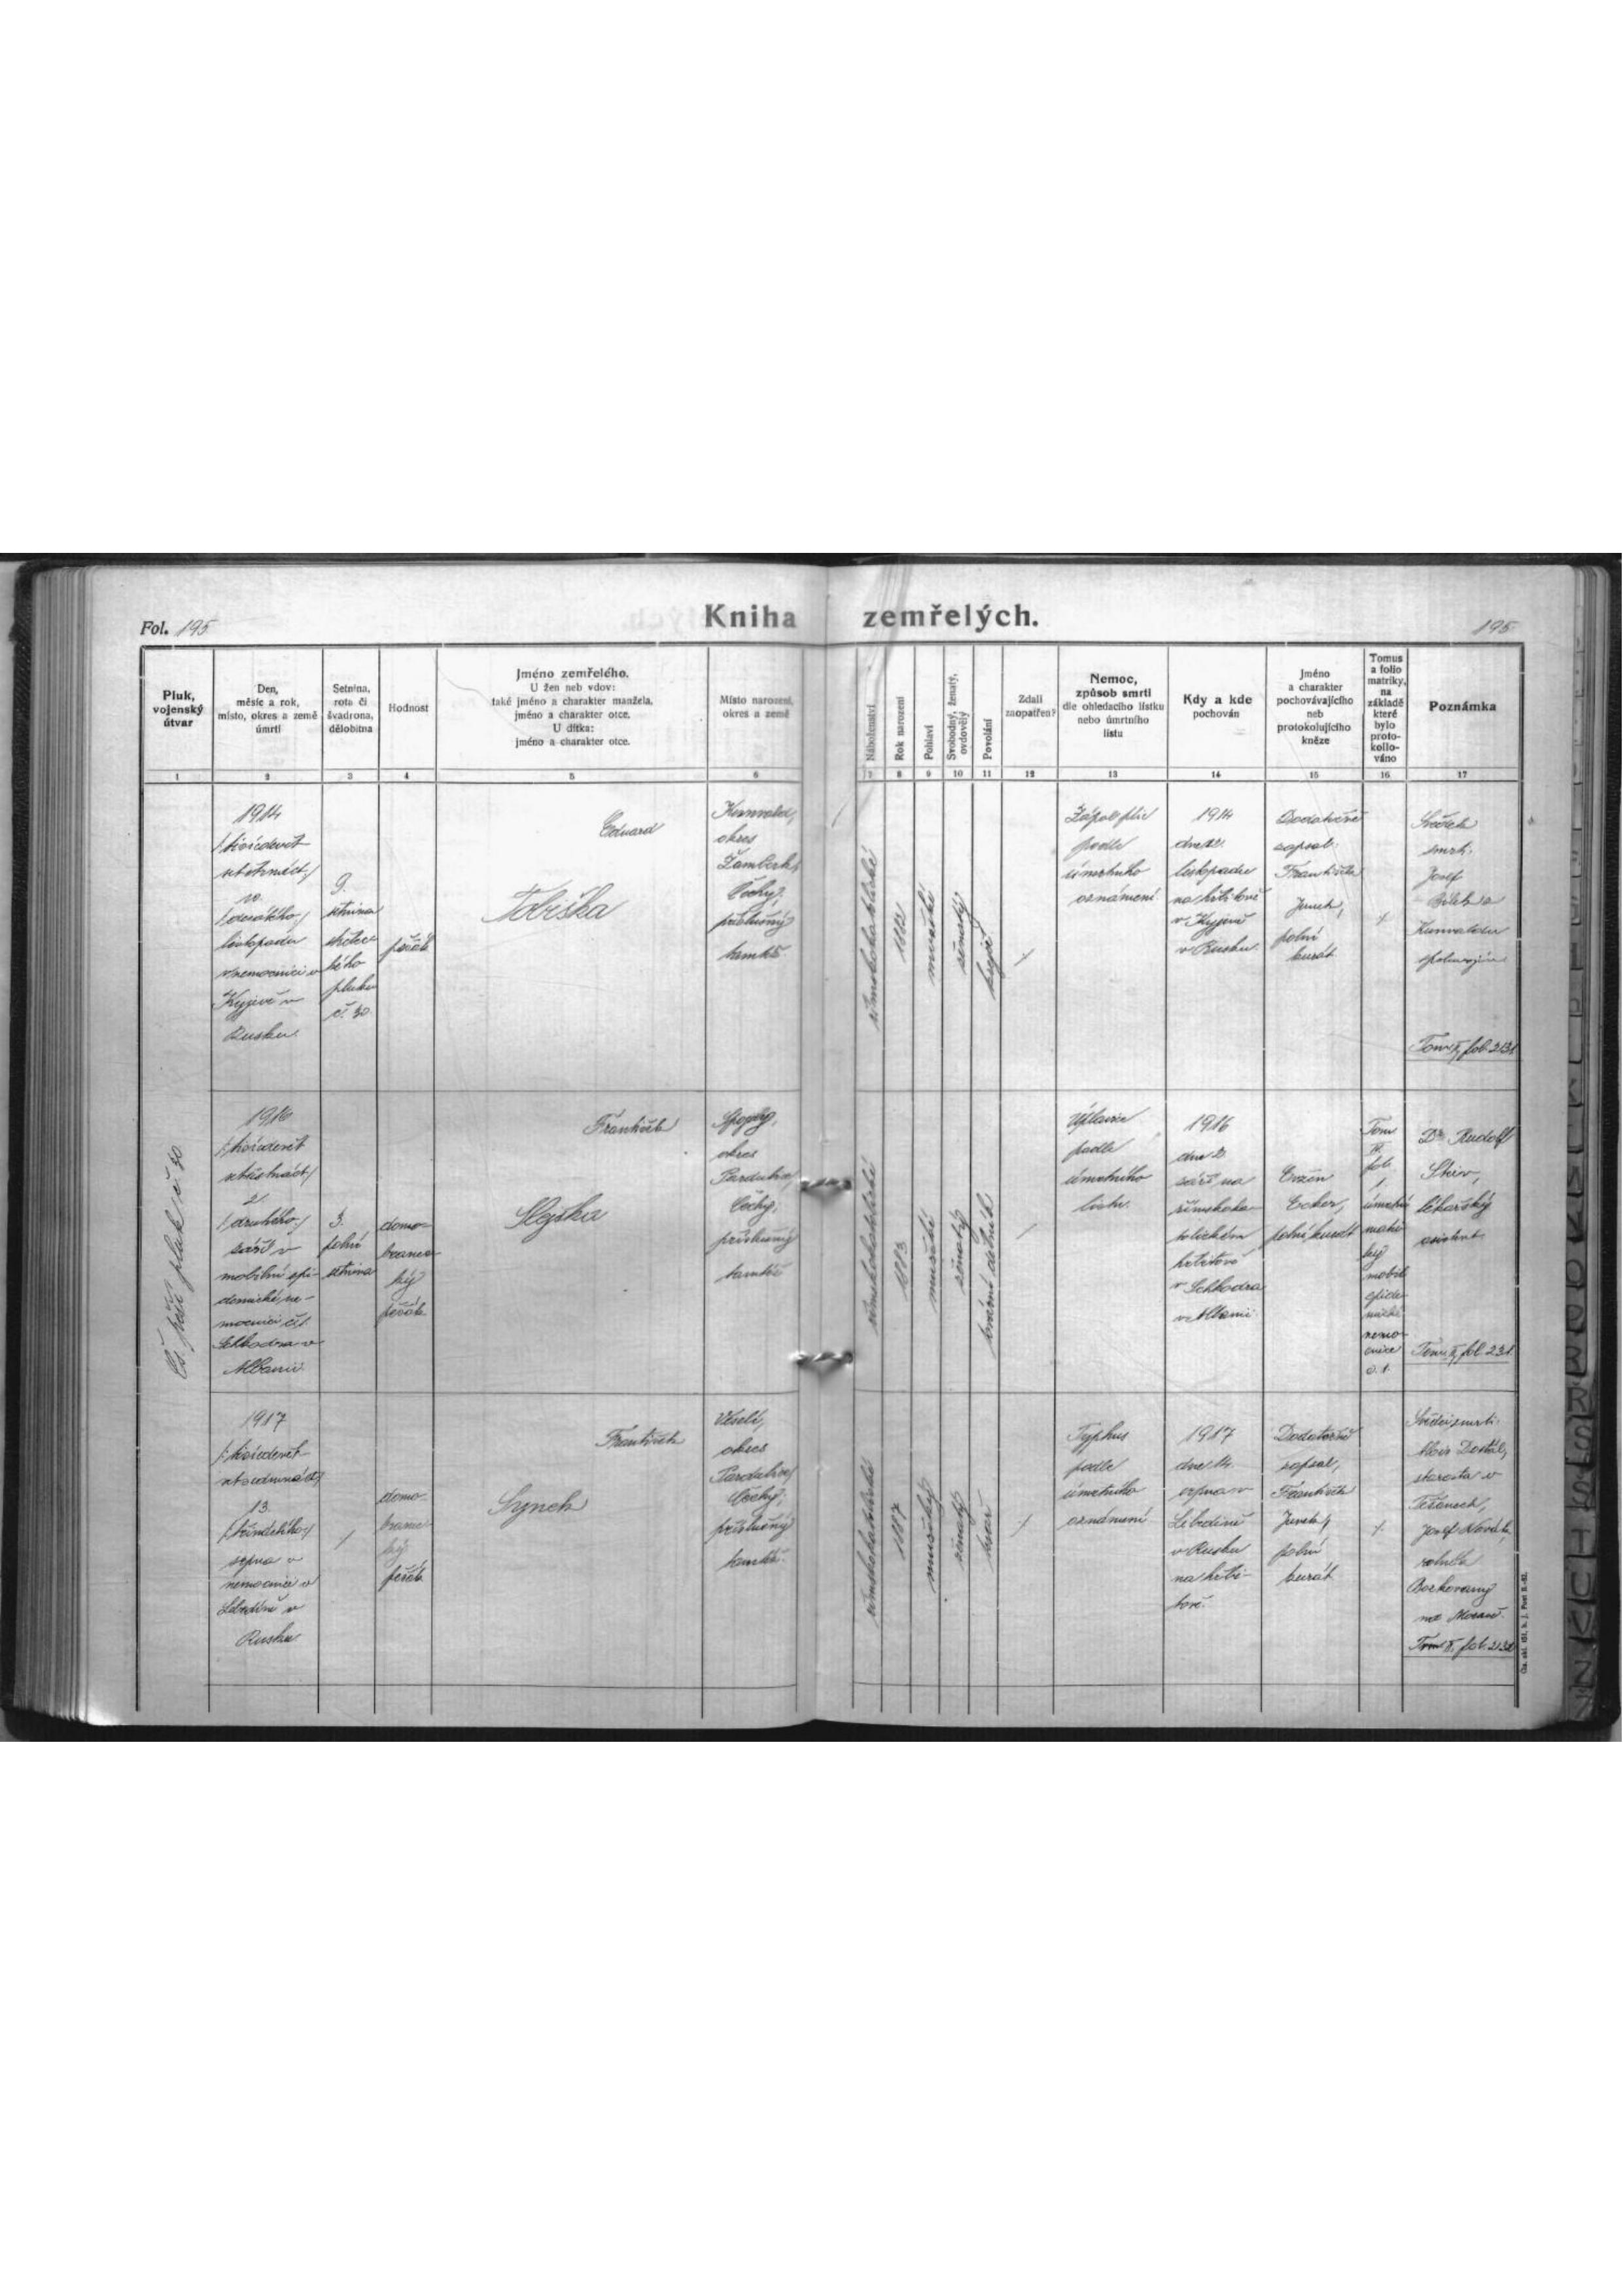 Fol. 195
Kniha zemřelých.
195
Pluk, vojenský útvar
Den, měsíc a rok, místo, okres a země úmrtí
Setnina, rota či švadrona, dělobitna
Hodnost
Jméno zemřelého.
U žen neb vdov:
také jméno a charakter manžela,
jméno a charakter otce.
U dítka:
jméno a charakter otce.
Místo narození, okres a země
Náboženství
Rok narození
Pohlaví
Svobodný, ženatý, ovdovělý
Povolání
Zdali zaopatřen?
Nemoc, způsob smrti dle ohledacího lístku nebo úmrtního listu
Kdy a kde pochován
Jméno a charakter pochovávajícího neb protokolujícího kněze
Tomus a folio matriky, na základě které bylo protokollováno
Poznámka
1 2 3 4 5 6 7 8 9 10 11 12 13 14 15 16 17
Čs. pěší pluk č. 30
1914
listopadu
v nemocnici v
Kyjevě v
Rusku.
9.
setnina
střelec-
kého
pluku
č. 30
pěšák
Eduard
okres
Žamberk,
Čechy,
příslušný
tamtéž.
římskokatolické
mužské
krejčí
podle
úmrtního
oznámení.
1914
listopadu
na hřbitově
v Kyjevě
v Rusku.
Dodatečně
zapsal
František
polní
kurát.
Svědek
Josef
Kunvaldu
1916
2.
/druhého/
září v
mobilní epi-
demické ne-
mocnici č. 1
Schkodra v
Albanii.
3.
polní
setnina
domo-
branec-
ký
pěšák
František
Slejška
okres
Pardubice,
Čechy,
příslušný
tamtéž
římskokatolické
1883
mužské
ženatý
tovární dělník
Úplavice
podle
úmrtního
listu.
1916
září na
římskoka-
tolickém
hřbitově
v Schkodra
v Albanii.
Evžen
Ecker,
polní kurát
Tom
fol.
1.
úmrtní
matri-
ky
mobil.
epide-
mické
nemo-
cnice
č. 1.
Dr. Rudolf
lékařský
asistent
1917
13.
/třináctého/
srpna v
nemocnici v
Lebedině v
Rusku.
domo-
branec-
ký
pěšák
František
Synek
Veselí,
okres
Pardubice,
Čechy,
příslušný
tamtéž.
římskokatolické
1887
mužský
ženatý
Typhus
podle
úmrtního
oznámení
1917
dne 14.
srpna v
Lebedině
v Rusku
na hřbi-
tově.
Dodatečně
zapsal,
František
polní
kurát
Svědci smrti:
Alois Dostál,
starosta v
Těšanech,
Josef Novák,
rolník
Borkovany
na Moravě.